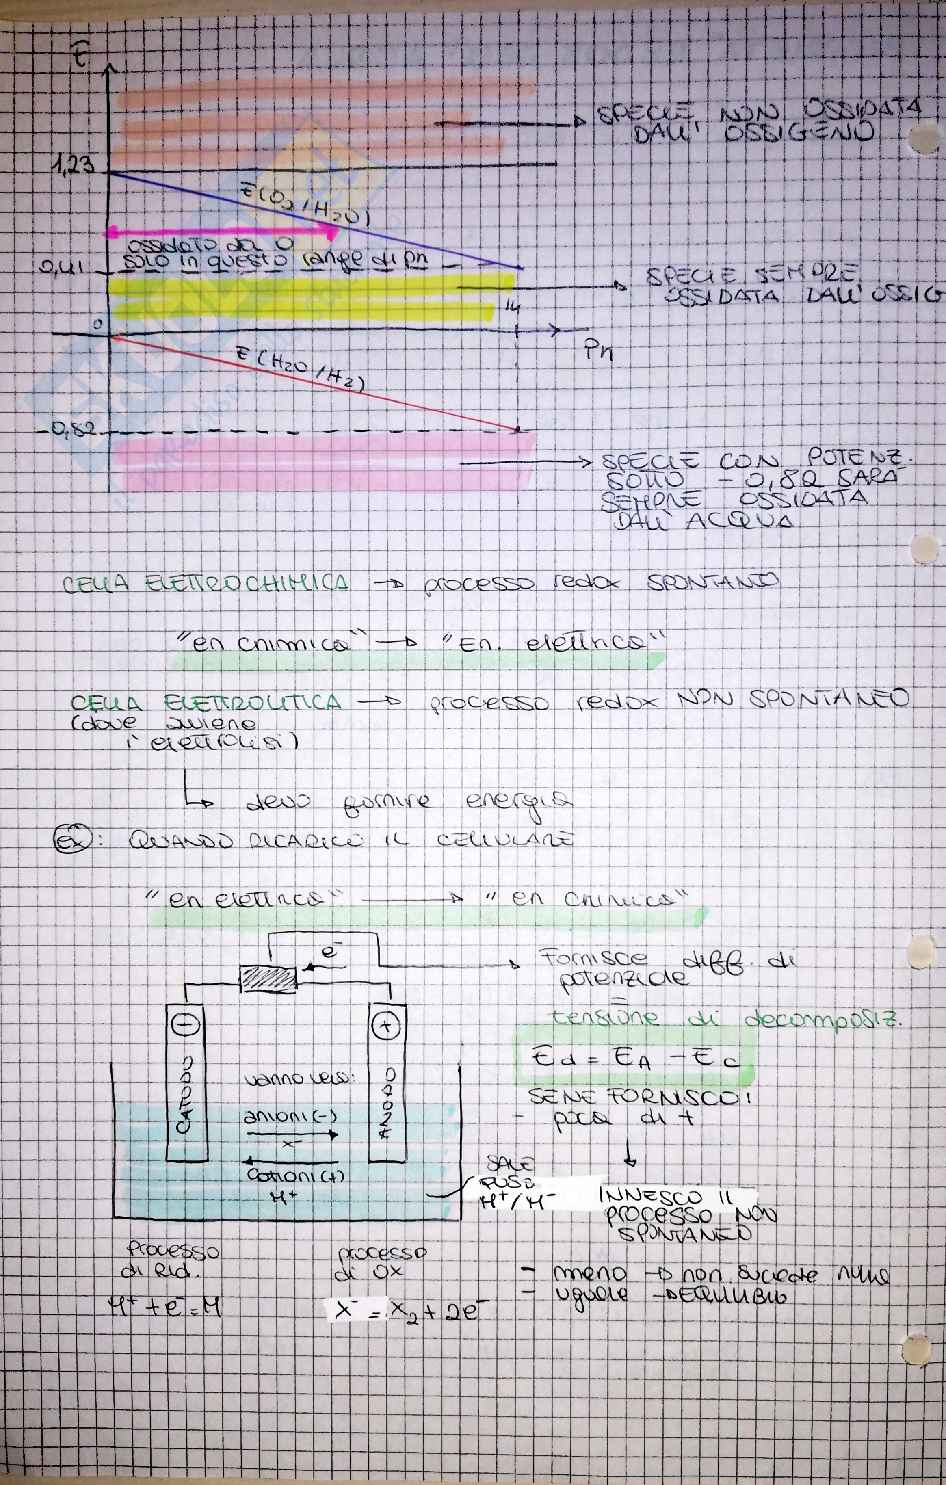 E
SPECIE NON OSSIDATA
DALL' OSSIGENO
1,23
E(O₂/H₂O)
ossidato da O
solo in questo range di pH
0,41
SPECIE SEMPRE
OSSIDATA DALL'OSSIG
14
0
PH
E(H₂O/H₂)
-0,82
SPECIE CON POTENZ.
SOTTO -0,82 SARÀ
SEMPRE OSSIDATA
DALL'ACQUA
CELLA ELETTROCHIMICA → processo redox SPONTANEO
"en chimica" → "En. elettrica"
CELLA ELETTROLITICA → processo redox NON SPONTANEO
(dove avviene
l'elettrolisi)
↳ devo fornire energia
ES: QUANDO RICARICO IL CELLULARE
"en elettrica" → "en chimica"
e⁻
Fornisce diff. di
potenziale
=
tensione di decomposiz.
Ed = EA - EC
SE NE FORNISCO:
- + +
CATODO
ANODO
vanno verso:
anioni (-)
X⁻
Cationi (+)
M⁺
SALE
FUSO
M⁺/
- di +
INNESCO IL
PROCESSO NON
SPONTANEO
Processo
di Rid.
processo
di OX
- meno → non succede nulla
- uguale → EQUILIBRIO
M⁺ + e⁻ = M
X⁻ = X₂ + 2e⁻